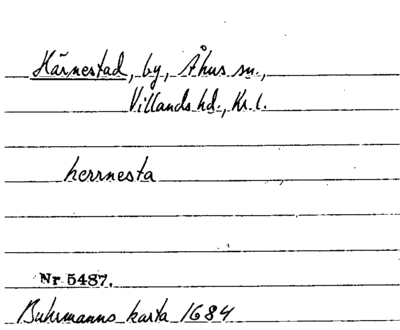 Härnestad, by, Åhus sn.,
Villands hd., Kr. l.
herrnesta
Nr 5487.
Buhrmanns karta 1684